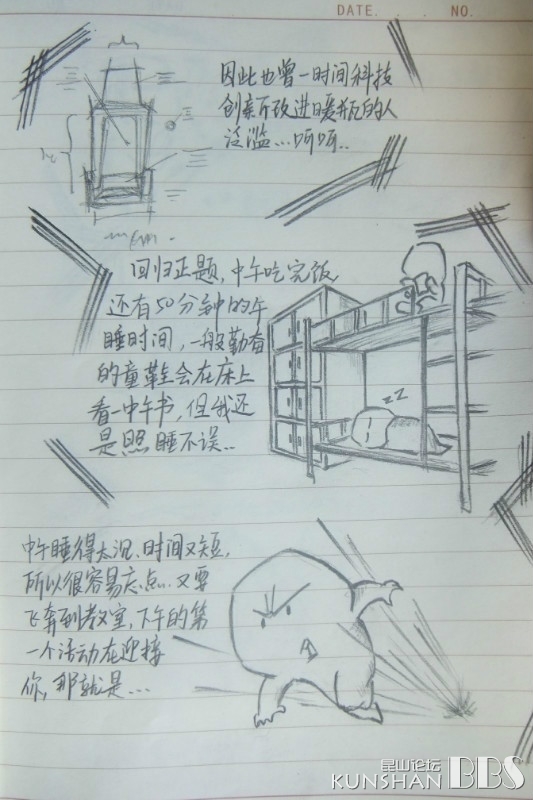 DATE. . . NO.
因此也曾一时间科技
创新所改进暖瓶的人
泛滥...呵呵..
回归正题,中午吃完饭
还有50分钟的午
睡时间,一般勤奋
的童鞋会在床上
看一中午书,但我还
是照睡不误..
ZZ
中午睡得太沉、时间又短,
所以很容易忘点...又要
飞奔到教室,下午的第
一个活动在迎接
你,那就是...
昆山论坛
KUNSHAN BBS